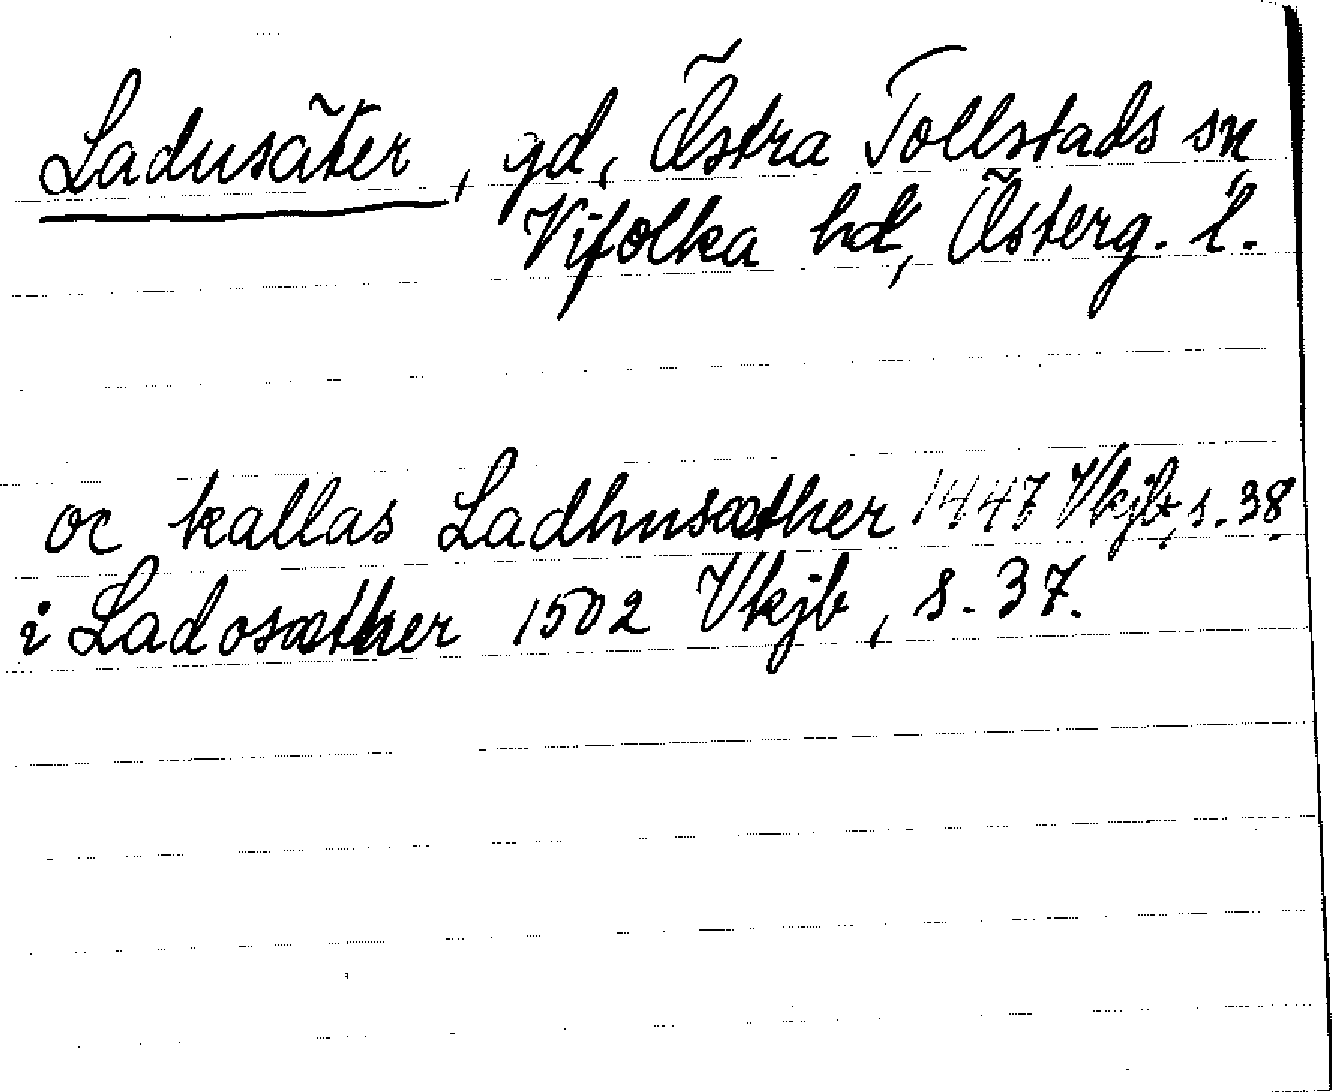 Ladusäter, gd, Östra Tollstads sn
Vifolka hd, Österg. l.
oc kallas Ladhusæther 1447 Vkjb, s. 38.
i Ladosæther 1502 Vkjb, s. 37.